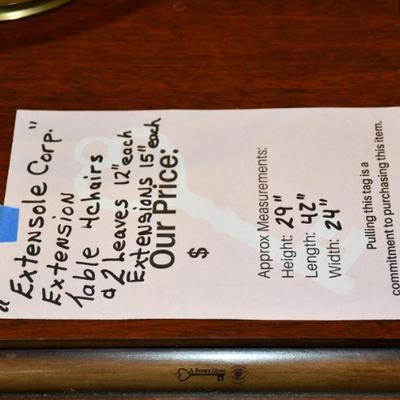 "Extensole Corp."
Extension
Table 4chairs
& 2 Leaves 12" each
Extensions 15" each
Our Price:
$
Approx Measurements:
Height: 29"
Length: 42"
Width: 24"
Pulling this tag is a
commitment to purchasing this item.